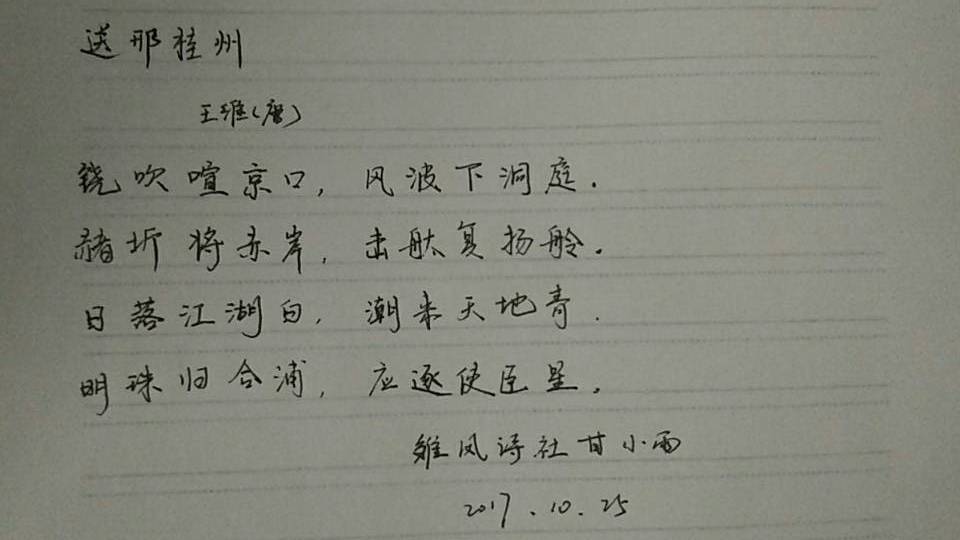 送邢桂州
王维(唐)
铙吹喧京口,风波下洞庭.
赭圻将赤岸,击汰复扬舲.
日落江湖白,潮来天地青.
明珠归合浦,应逐使臣星.
雏凤诗社甘小雨
2017.10.25